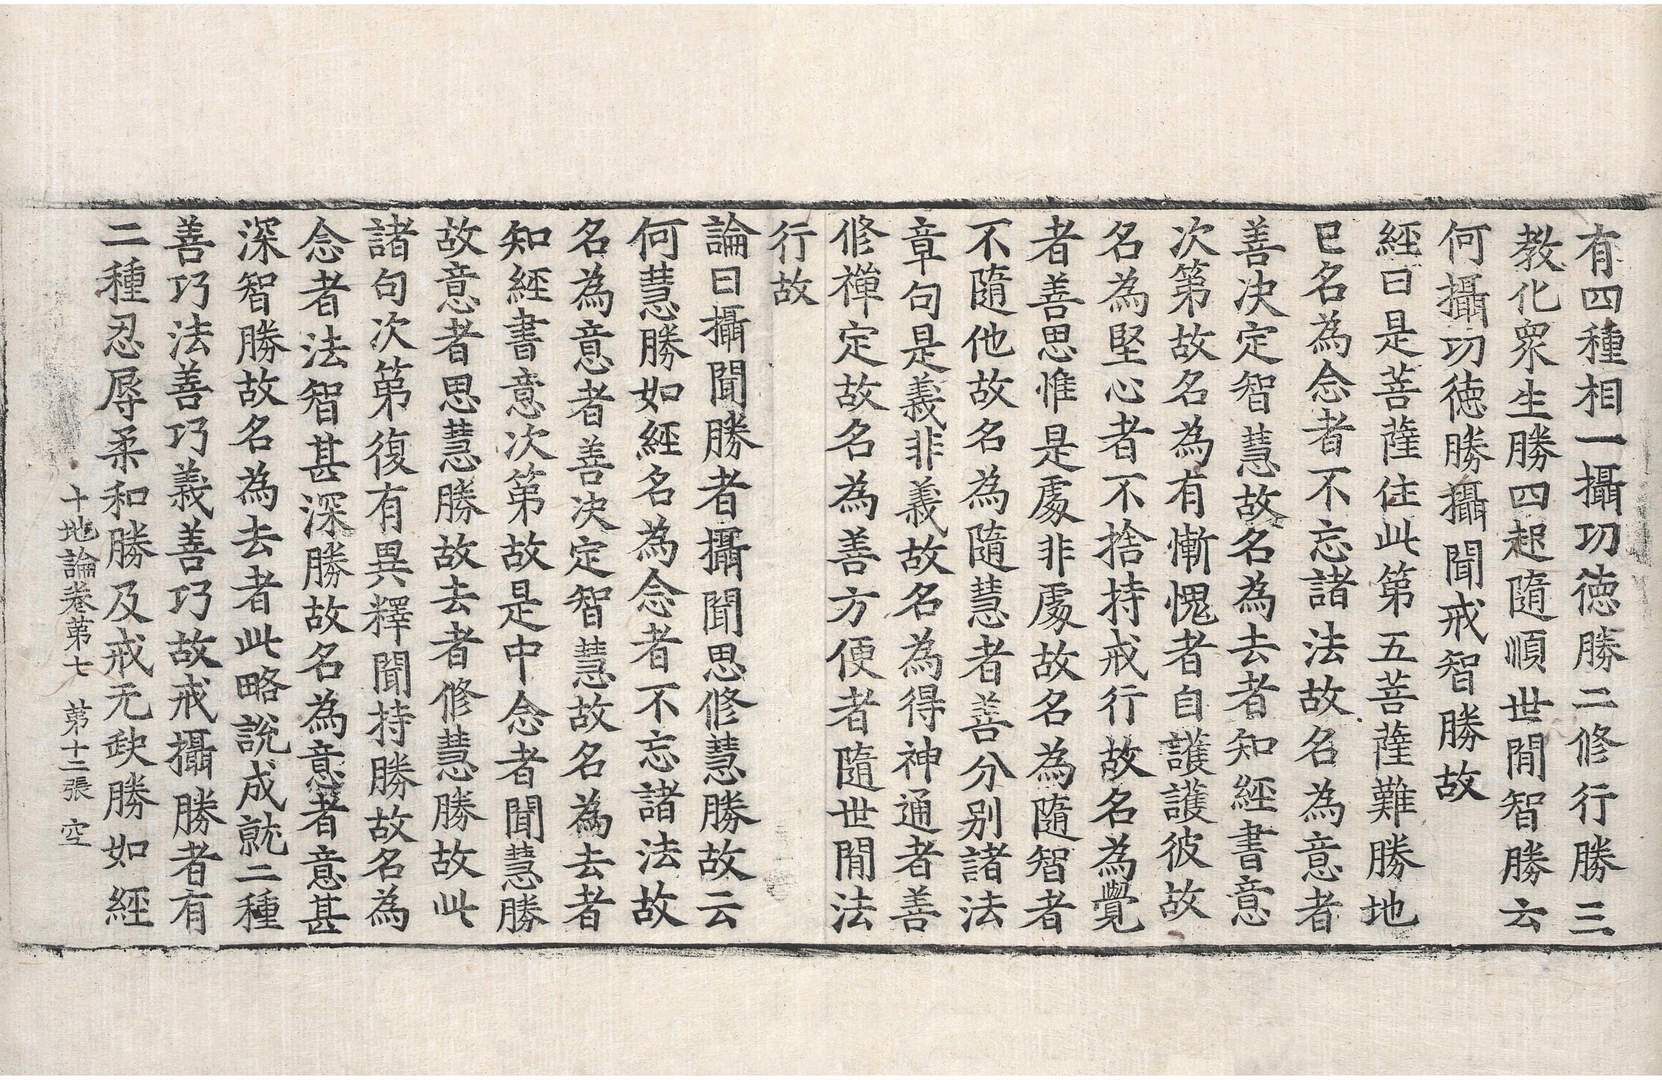 有四種相一攝功德勝二修行勝三
教化衆生勝四起隨順世閒智勝云
何攝功德勝攝聞戒智勝故
經曰是菩薩住此第五菩薩難勝地
巳名為念者不忘諸法故名為意者
善决定智慧故名為去者知經書意
次第故名為有慚愧者自護護彼故
名為堅心者不捨持戒行故名為覺
者善思惟是處非處故名為隨智者
不隨他故名為隨慧者善分别諸法
章句是義非義故名為得神通者善
修禪定故名為善方便者隨世閒法
行故
論曰攝聞勝者攝聞思修慧勝故云
何慧勝如經名為念者不忘諸法故
名為意者善决定智慧故名為去者
知經書意次第故是中念者聞慧勝
故意者思慧勝故去者修慧勝故此
諸句次第復有異釋聞持勝故名為
念者法智甚深勝故名為意者意甚
深智勝故名為去者此略說成就二種
善巧法善巧義善巧故戒攝勝者有
二種忍辱柔和勝及戒无缺勝如經
十地論卷第七 第十二張 空